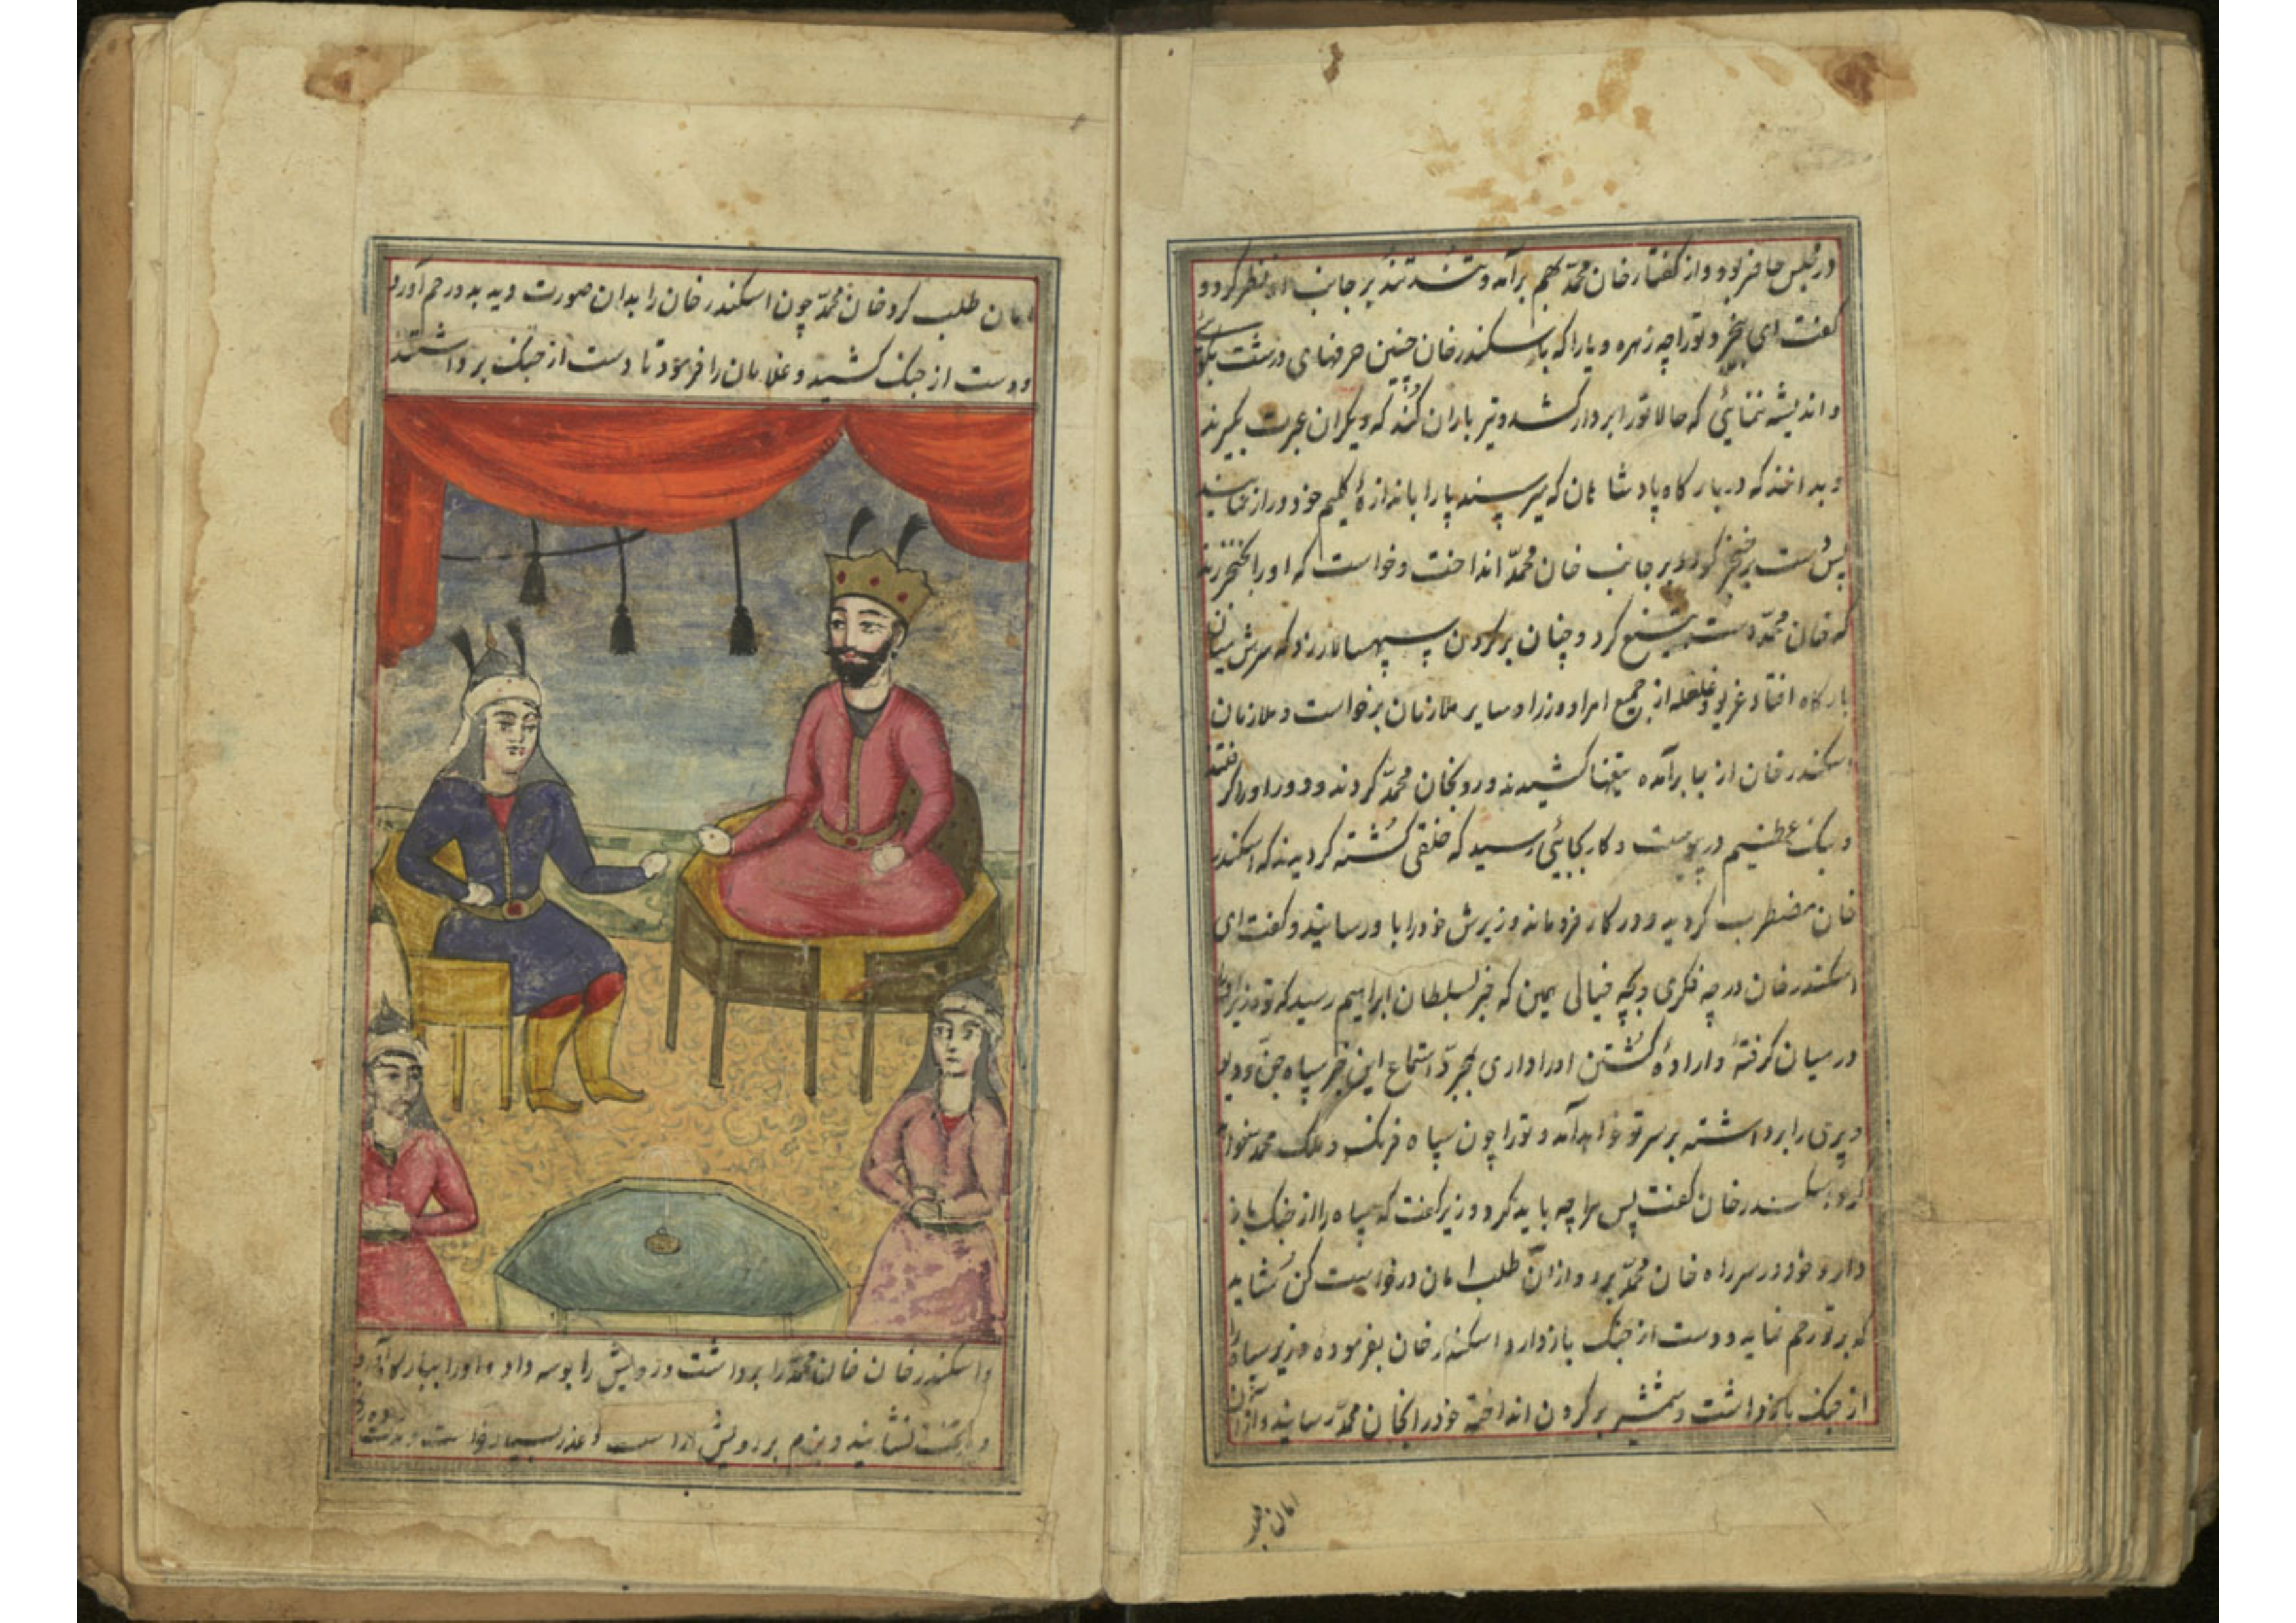 در مجلس حاضر بود و از گفتار خان محمّد بهم برآمد و تند تند بر جانب او نظر کرد و
گفت ای بیخرد تو را چه زهره و یارا که با اسکندر خان چنین حرفهای درشت بگوئی
و اندیشه ننمایئ که حالا تو را بر دار کشد و تیر باران کُند که دیگران عبرت گیرند
و بدانند که در بارگاه پادشاهان که میرسند پا را باندازهٔ گلیم خود دراز نمایند
پس دست بر خنجر کرد و بر جانب خان محمّد انداخت و خواست که او را خنجر زند
که خان محمّد دست به تیغ کرد و چنان بر گردن سپهسالار زد که سرش میان
بارگاه افتاد غریو و غلغله از جمیع امرا و وزرا و سایر ملازمان برخواست و ملازمان
اسکندر خان از جا برآمده تیغها کشیدند و رو بخان محمّد کردند و دور او را گرفتند
و جنک عظیم در پیوست و کار بجایئ رسید که خلقی کُشته گردیدند که اسکندر
خان مضطرب گردید و در کار فرو ماند وزیرش خود را باو رسانید و گفت ای
اسکندر خان در چه فکری و بچه خیالی همین که خبر بسلطان ابراهیم رسید که تو وزیر او را
در میان گرفتهٔ و ارادهٔ کُشتن او را داری بمجرّد استماع این خبر سپاه جنّ و دیو
و پری را برداشته بر سر تو خواهد آمد و تو را چون سپاه فرنک و ملک محمد خواهد
کرد اسکندر خان گفت پس مرا چه باید کرد وزیر گفت که سپاه را از جنک باز
دار و خود در سر راه خان محمّد برو و از آن طلب امان درخواست کن شاید
که بر تو رحم نماید و دست از جنک باز دارد اسکندر خان بفرمودهٔ وزیر سپاه را
از جنک بازداشت و شمشیر بر گردن انداخته خود را بخان محمّد رسانید و از آن
امان طلب
امان طلب کرد خان محمّد چون اسکندر خان را بدان صورت دید بدو رحم آورد
و دست از جنک کشید و غلامان را فرمود تا دست از جنک برداشتند
و اسکندر خان خان محمّد را برداشت و رویش را بوسه داد و او را ببارگاه آورد
و بر تخت نشانید و بزم بر رویش آراست و عذر بسیار خواست و مدت